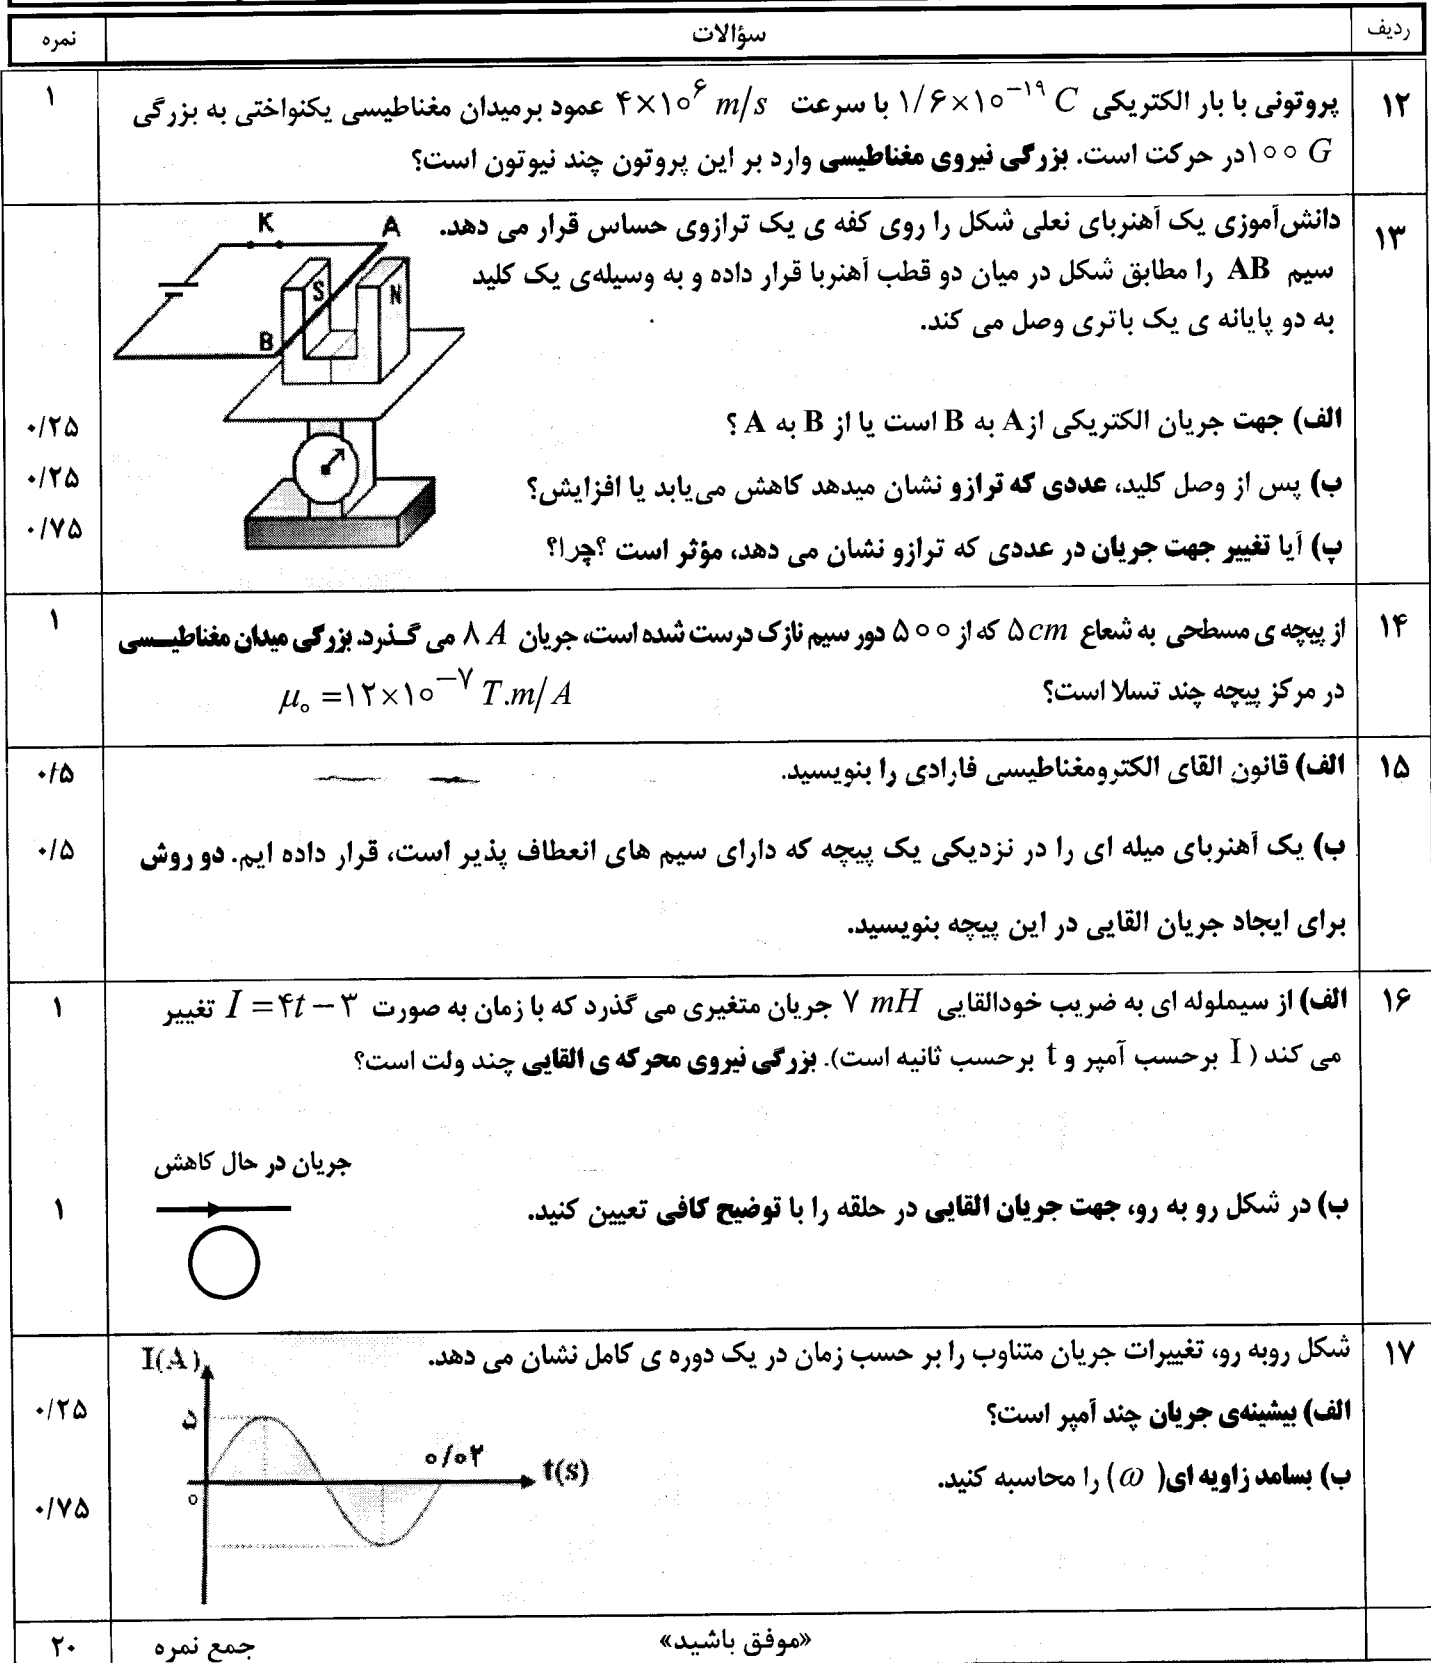 ردیف سؤالات نمره
۱۲ پروتونی با بار الکتریکی ۱/۶×۱۰^{-۱۹} C با سرعت ۴×۱۰^۶ m/s عمود برمیدان مغناطیسی یکنواختی به بزرگی ۱
۱۰۰ G در حرکت است. بزرگی نیروی مغناطیسی وارد بر این پروتون چند نیوتون است؟
۱۳ دانش‌آموزی یک آهنربای نعلی شکل را روی کفه ی یک ترازوی حساس قرار می دهد.
سیم AB را مطابق شکل در میان دو قطب آهنربا قرار داده و به وسیله‌ی یک کلید
به دو پایانه ی یک باتری وصل می کند.
K
A
S
N
B
الف) جهت جریان الکتریکی از A به B است یا از B به A ؟ ۰/۲۵
ب) پس از وصل کلید، عددی که ترازو نشان میدهد کاهش می‌یابد یا افزایش؟ ۰/۲۵
پ) آیا تغییر جهت جریان در عددی که ترازو نشان می دهد، مؤثر است ؟چرا؟ ۰/۷۵
۱۴ از پیچه ی مسطحی به شعاع ۵ cm که از ۵۰۰ دور سیم نازک درست شده است، جریان ۸ A می گـذرد. بزرگی میدان مغناطیـسی ۱
در مرکز پیچه چند تسلا است؟ μ₀ =۱۲×۱۰^{-۷} T.m/A
۱۵ الف) قانون القای الکترومغناطیسی فارادی را بنویسید. ۰/۵
ب) یک آهنربای میله ای را در نزدیکی یک پیچه که دارای سیم های انعطاف پذیر است، قرار داده ایم. دو روش ۰/۵
برای ایجاد جریان القایی در این پیچه بنویسید.
۱۶ الف) از سیملوله ای به ضریب خودالقایی ۷ mH جریان متغیری می گذرد که با زمان به صورت I =۴t −۳ تغییر ۱
می کند ( I برحسب آمپر و t برحسب ثانیه است). بزرگی نیروی محرکه ی القایی چند ولت است؟
جریان در حال کاهش
ب) در شکل رو به رو، جهت جریان القایی در حلقه را با توضیح کافی تعیین کنید. ۱
۱۷ شکل روبه رو، تغییرات جریان متناوب را بر حسب زمان در یک دوره ی کامل نشان می دهد.
الف) بیشینه‌ی جریان چند آمپر است؟ ۰/۲۵
ب) بسامد زاویه ای( ω ) را محاسبه کنید. ۰/۷۵
I(A)
۵
۰/۰۲
t(s)
۰
«موفق باشید» جمع نمره ۲۰